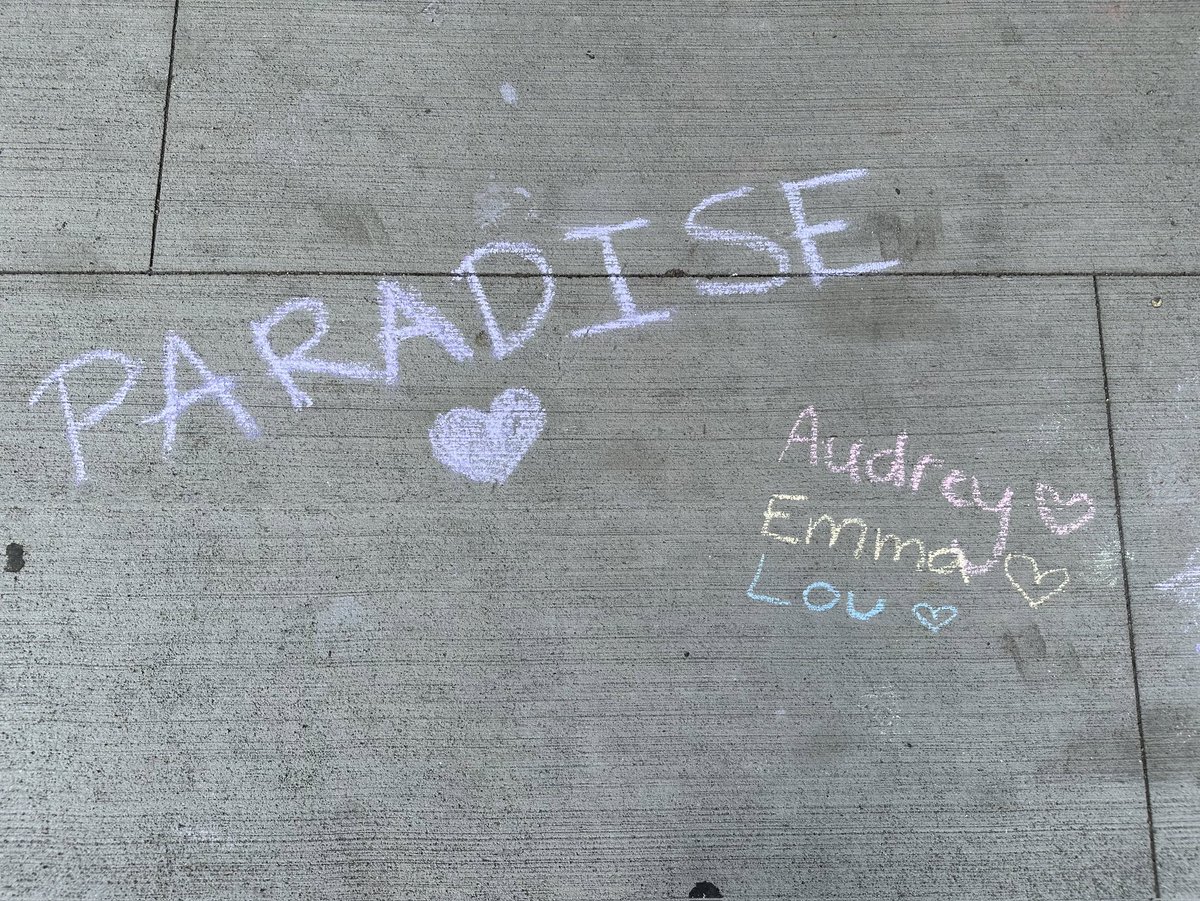 PARADISE
Audrey
Emma
Lou